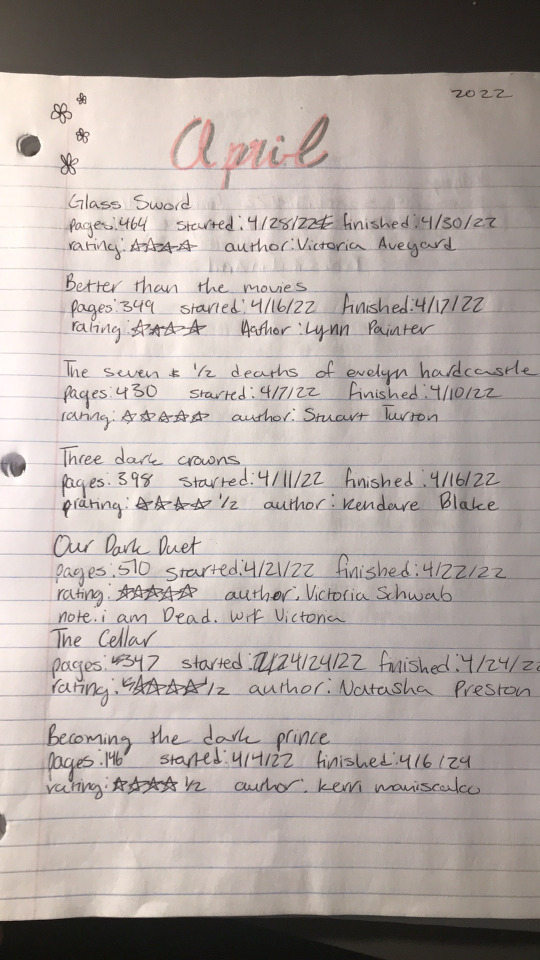 2022
April
Glass Sword
pages:464 started:4/28/22 finished:4/30/22
rating:☆☆☆☆ author:Victoria Aveyard
Better than the movies
pages:349 started:4/16/22 finished:4/17/22
rating:☆☆☆☆ Author:Lynn Painter
The seven & 1/2 deaths of evelyn hardcastle
pages:430 started:4/7/22 finished:4/10/22
rating:☆☆☆☆☆ author:Stuart Turton
Three dark crowns
pages:398 started:4/11/22 finished:4/16/22
rating:☆☆☆☆ 1/2 author:Kendare Blake
Our Dark Duet
pages:510 started:4/21/22 finished:4/22/22
rating:☆☆☆☆☆ author.Victoria Schwab
note.i am Dead. wtf Victoria
The Cellar
pages:347 started: finished:4/24/22
rating:☆☆☆☆1/2 author:Natasha Preston
Becoming the dark prince
pages:146 started:4/4/22 finished:4/6/29
rating:☆☆☆☆ 1/2 author.kerri maniscalco